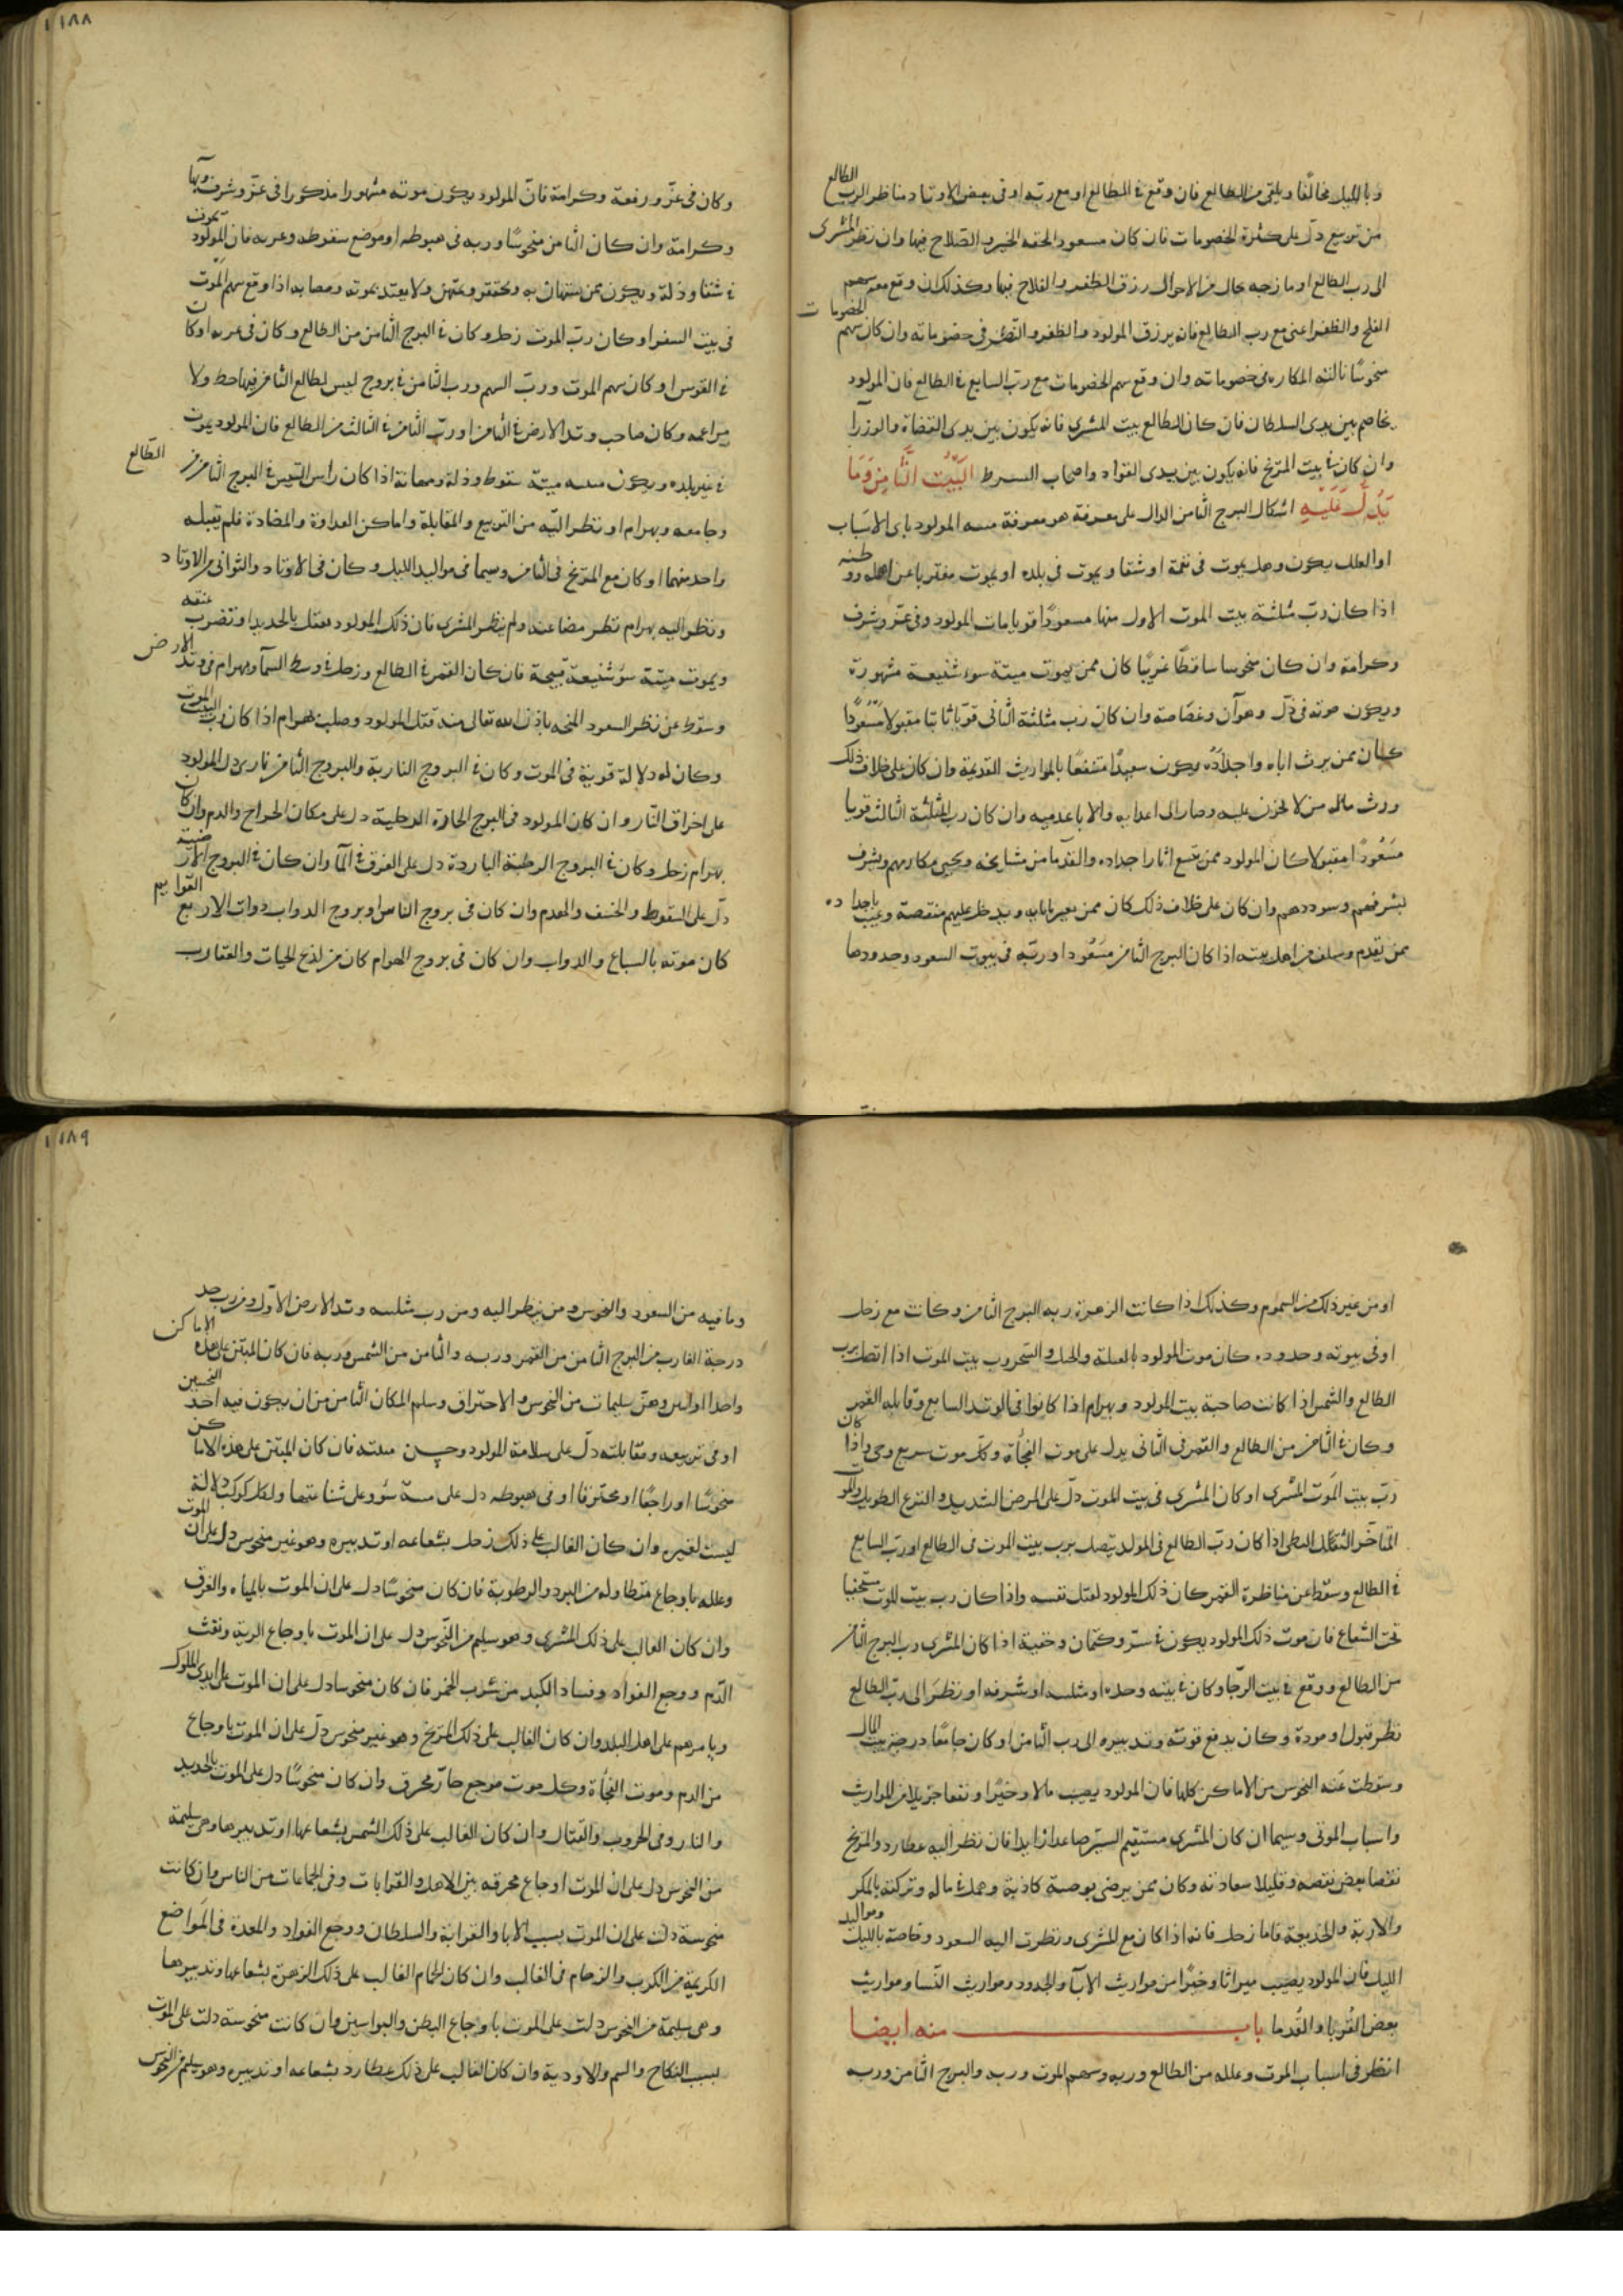 وبالليل مخالفا ويلقى من الطالع فان وقع في الطالع او مع ربه او في بعض الاوتاد مناظر الرب الطالع
من تربيع دل على كثرة الخصومات فان كان مسعود الحقه الخير والصلاح فيها وان نظر المشترى
الى رب الطالع او مازجه بحال من الاحوال رزق الظفر والفلاح فيها وكذلك ان وقع معه سهم
الفلج والظفر اعنى مع رب الطالع فانه يرزق المولود والظفر و في خصوماته وان كان سهم الخصومات
منحوسا نالته المكاره في خصوماته وان وقع سهم الخصومات مع رب السابع في الطالع فان المولود
يخاصم بين يدى السلطان فان كان الطالع بيت المشترى فانه يكون بين يدى القضاة والوزرآ
وان كان في بيت المريخ فانه يكون بين يدى القواد واصحاب الشرط البَيْت الثَّامِن وَمَا
يَدُلّ عَلَيْهِ اشكال البرج الثامن الدال على معرفة هو معرفة ميتة المولود باى الاسباب
او العلل يكون وهل يموت في نعمة او شقا ويموت في بلده او يموت مغتربا عن اهله ووطنه
اذا كان رب مثلثة بيت الموت الاول منها مسعودًا قويا مات المولود وفى عز وشرف
وكرامة وان كان منحوسا ساقطا غريبا كان ممن يموت ميتة سوء شنيعة مشهورة
ويكون موته في ذل وهوآن وغضاضة وان كان رب مثلثة الثانى قويا ثابتا مقبولا مسعودًا
كان ممن يرث اباه واجداده ويكون سعيدًا منتفعا بالمواريث القديمة وان كان على خلاف ذلك
ورث ماله من لا يحزن عليه وصار الى اعدايه والاباعد منه وان كان رب المثلثة الثالث قويا
مسعُودًا مقبولا كان المولود ممن يتبع اثار اجداده والقدما من مشايخه ويحيى مكارمهم ويشرف
بشرفهم وسوددهم وان كان على خلاف ذلك كان ممن يعير باباء ويدخل عليهم منقصة وعيب باجداده
ممن تقدم وسلف من اهل بيته اذا كان البرج الثامن مسعُودا وربه في بيوت السعود وحدودها
١١٨٨
وكان في عز ورفعة وكرامة فان المولود يكون موته مشهورا مذكورا في عز وشرف وبهآ
وكرامة وان كان الثامن منحوسًا وربه في هبوطه او موضع سقوطه وغربه فان المولود يموت
في شقا وذلة ويكون ممن يستهان به ويحتقر ويمتهن ولا يعتد بموته ومصابه اذا وقع سهم الموت
في بيت السفر او كان رب الموت زحل وكان في البرج الثامن من الطالع وكان في غربه او كان
في القوس او كان سهم الموت ورب السهم ورب الثامن في بروج ليس لطالع الثامن فيها حظ ولا
مزاعمه وكان صاحب وتد الارض في الثامن او رب الثامن في الثالث من الطالع فان المولود يموت
في غير بلده ويكون ميتته ميتة سقوط وذلة ومهانة اذا كان راس التنين في البرج الثامن من الطالع
وجامعه وبهرام او نظر اليه من التربيع والمقابلة واماكن العداوة والمضادة فلم يقبله
واحد منهما او كان مع المريخ في الثامن وسيما في مواليد الليل وكان في الاوتاد والثوانى من الاوتاد
ونظر اليه بهرام نظر مضاعنه ولم ينظر المشترى فان ذلك المولود يقتل بالحديد او تضرب عنقه
ويموت ميتة سؤ شنيعة قبيحة فان كان القمر في الطالع وزحل في وسط السمآ وبهرام في وتد الارض
وسقط عن نظر السعود اتخه باذن الله تعالى منه قتل المولود وصلب بهرام اذا كان رب البيت الموت
وكان له دلالة قوية في الموت وكان في البروج النارية والبروج الثامن نارى دل المولود
على احراق النار وان كان المولود في البرج الحارة الرطبة دل على مكان الجراح والدم وان كان
بهرام زحل وكان في البروج الرطبة الباردة دل على الغرق في المآ وان كان في البروج الارضية
دل على السقوط والخسف والهدم وان كان في بروج الناس او بروج الدواب ذوات الاربع القوايم
كان موته بالسباع والدواب وان كان في بروج الهوام كان من لذع الحيات والعقارب
او من غير ذلك من السموم وكذلك اذا كانت الزهرة ربه البرج الثامن وكانت مع زحل
او في بيوته وحدوده كان موت المولود بالعيلة والحيل والسحر ورب بيت الموت اذا اتصل برب
الطالع والشمس اذا كانت صاحبة بيت المولود وبهرام اذا كانوا في الوتد السابع وقابله القمر
وكان في الثامن من الطالع والقمر في الثانى يدل على موت الفجأة وكل موت سريع وحى واذا كان
رب بيت الموت المشترى او كان المشترى في بيت الموت دل على المرض الشديد والنزع الطويل والموت
المتاخر الثقيل البطى اذا كان رب الطالع في المولد يتصل برب بيت الموت في الطالع او رب السابع
في الطالع وسقط عن مناظرة القمر كان ذلك المولود لقتل نفسه واذا كان رب بيت الموت مستخفيا
تحت الشعاع فان موت ذلك المولود يكون في ستر وكتمان وخفية اذا كان المشترى رب البرج الثامن
من الطالع ووقع في بيت الرجا وكان في بيته وحده او مثلثته او شرفه او نظر الى رب الطالع
نظر قبول او مودة وكان يدفع قوته وتدبيره الى رب الثامن او كان جامعًا درجة بيت المال
وسقطت عنه النحوس من الاماكن كلها فان المولود يصيب مالا وخيرًا ونفعا جزيلا من المواريث
واسباب الموتى وسيما ان كان المشترى مستقيم السير صاعدا زايدا فان نظر اليه عطارد والمريخ
نقصا بعض نقصه وقليلا سعادته وكان ممن يرضى بوصية كاذبة وهلك ماله وتركته بالمكر
والاربة والخديعة فاما زحل فانه اذا كان مع المشترى ونظرت اليه السعود وخاصة بالليل ومواليد
الليل فان المولود يصيب ميراثا وخيرًا من مواريث الآبآ والجدود ومواريث النسا ومواريث
بعض القُربا والقُدما باب منه ايضا
انظر في اسباب الموت وعلله من الطالع وربه وسهم الموت وربه والبرج الثامن وربه
١١٨٩
وما فيه من السعود والنحوس ومن ينظر اليه ومن رب مثلثته وتد الارض الاول ومن رب حد
درجة الغارب من البرج الثامن من القمر وربه والثامن من الشمس وربه فان كان المبتز على هذه الاماكن
واحدا او اثنين وهن سليمات من النحوس والاحتراق وسلم المكان الثامن من ان يكون فيه احد النحسين
او في تربيعه ومقابلته دل على سلامة المولود وحسن ميتته فان كان المبتز على هذه الاماكن
منحوسًا او راجعًا او محترقا او في هبوطه دل على ميتة سؤ وعلى شناعتها ولكل كوكب دلالة
ليست لغيره وان كان الغالب على ذلك زحل بشعاعه او تدبيره وهو غير منحوس دل على ان الموت
وعلله باوجاع متطاوله من البرد والرطوبة فان كان منحوسًا دل على ان الموت بالمياه والغرق
وان كان الغالب على ذلك المشترى وهو سليم من النحوس دل على ان الموت باوجاع الرية ونفث
الدم ووجع الفواد وفساد الكبد من شرب الخمر فان كان منحوسا دل على ان الموت على ايدى الملوك
ويامرهم على اهل البلد وان كان الغالب على ذلك المريخ وهو غير منحوس دل على ان الموت باوجاع
من الدم وموت الفجأة وكل موت موجع حار محرق وان كان منحوسًا دل على الموت بالحديد
والنار وفى الحروب والقتال وان كان الغالب على ذلك الشمس بشعاعها او تدبيرها وهى سليمة
من النحوس دل على ان الموت اوجاع محرقه بين الاهل والقرابات وفى الجماعات من الناس وان كانت
منحوسة دلت على ان الموت بسبب الابا والقرابة والسلطان ووجع الفواد والمعدة في المواضع
الكريهة من الكرب والزحام في الغالب وان كان الحمام الغالب على ذلك الزهرة بشعاعها وتدبيرها
وهى سليمة من النحوس دلت على الموت باوجاع البطن والبواسير وان كانت منحوسة دلت على الموت
بسبب النكاح والسم والاودية وان كان الغالب على ذلك عطارد بشعاعه او تدبيره وهو سليم من النحوس